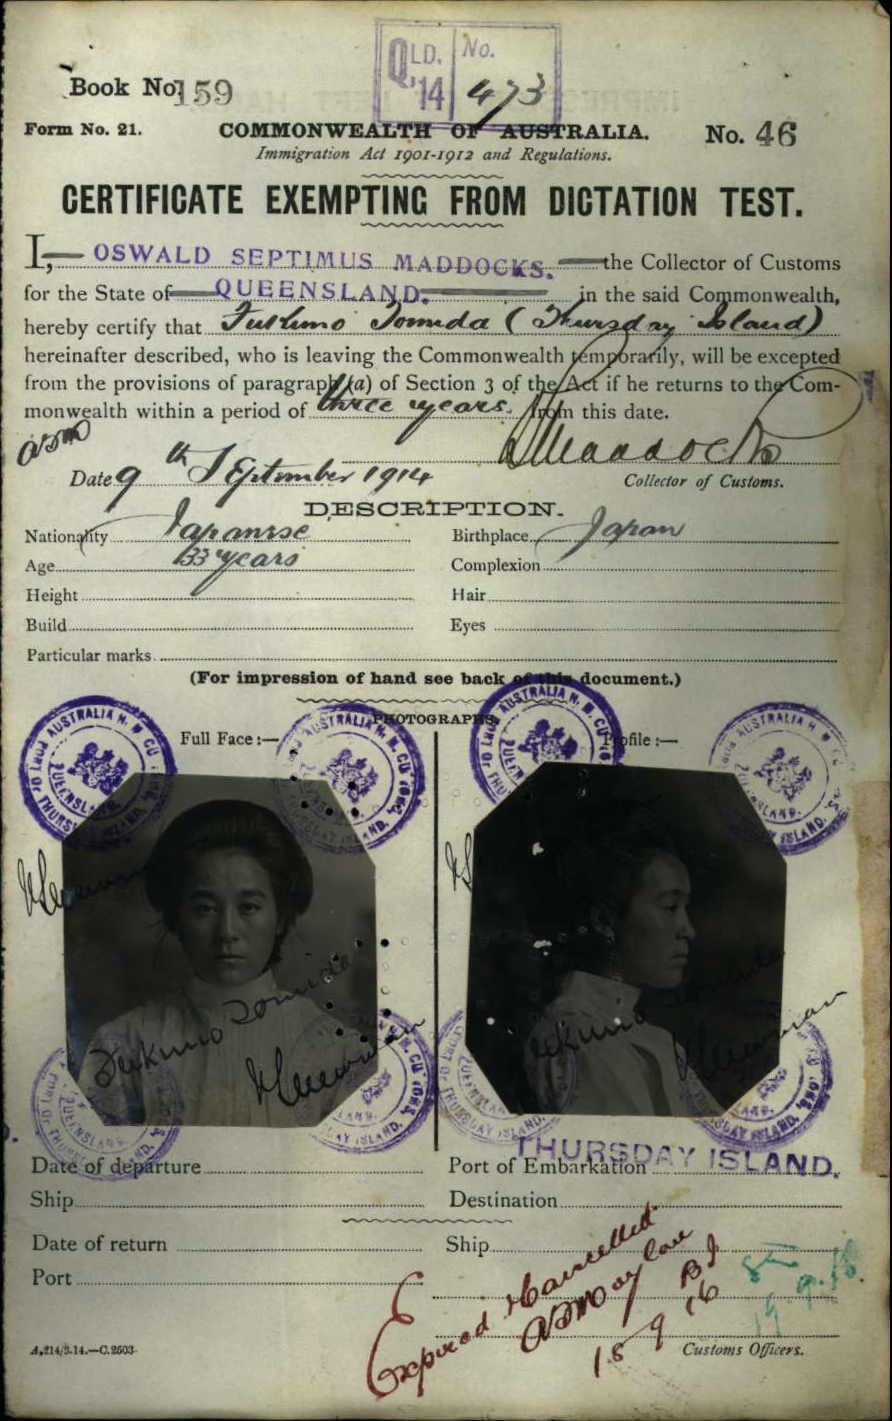 QLD. No.
'14 473
Book No. 159
Form No. 21. COMMONWEALTH OF AUSTRALIA. No. 46
Immigration Act 1901-1912 and Regulations.
CERTIFICATE EXEMPTING FROM DICTATION TEST.
I, OSWALD SEPTIMUS MADDOCKS. the Collector of Customs
for the State of QUEENSLAND. in the said Commonwealth,
hereby certify that Fukuno Tomida (Thursday Island)
hereinafter described, who is leaving the Commonwealth temporarily, will be excepted
from the provisions of paragraph (a) of Section 3 of the Act if he returns to the Com-
monwealth within a period of three years. from this date.
Maddocks
Date 9th September 1914 Collector of Customs.
DESCRIPTION.
Nationality Japanese Birthplace Japan
Age 33 years Complexion
Height Hair
Build Eyes
Particular marks
(For impression of hand see back of this document.)
PHOTOGRAPHS.
Full Face :— Profile :—
Fukuno Tomida
Fukuno Tomida
Date of departure Port of Embarkation THURSDAY ISLAND.
Ship Destination
Date of return Ship
Port
Expired & Cancelled
18 9 16
Customs Officers.
A.214/3.14.—C.2503.